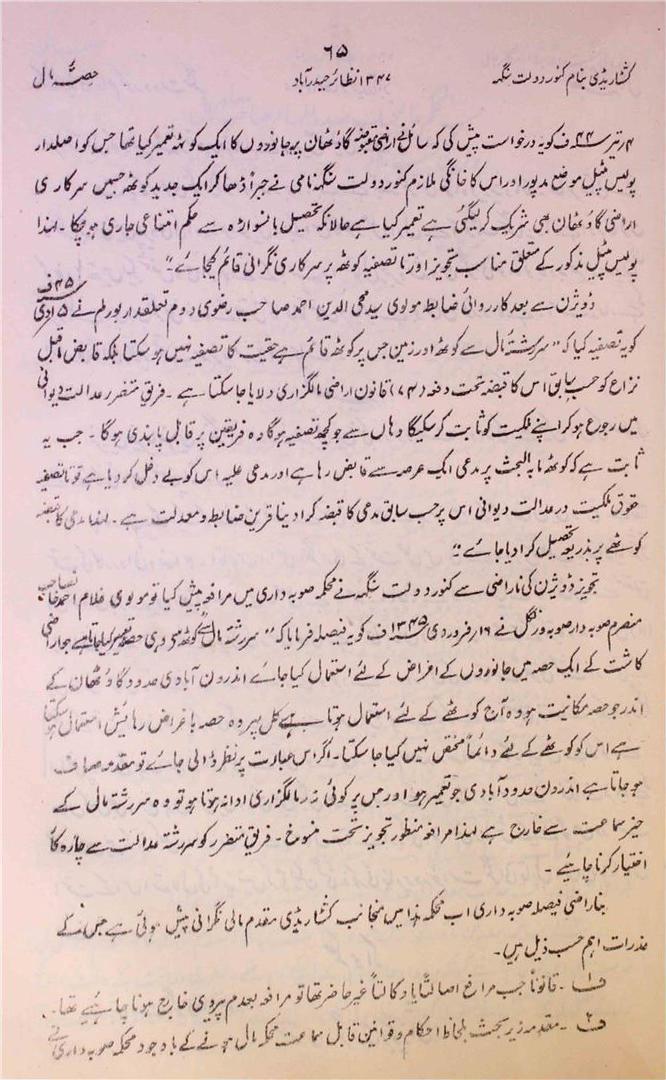 ۶۵
کشٹاریڈی بنام کنور دولت سنگہ
۱۳۴۷ نظائر حیدرآباد
حصہ مال
۴؍تیر ۴۴ف کو یہ درخواست پیش کی کہ سائل نے اراضی مقبوضہ گاؤٹھان پر جانوروں کا ایک کوٹھہ تعمیر کیا تھا جس کو اصلدار
پولیس پٹیل موضع مدپور اور اس کا خانگی ملازم کنور دولت سنگہ نامی نے جبراً ڈھا کر ایک جدید کوٹھہ جسمیں سرکاری
اراضی گاؤٹھان بھی شریک کر لیگئی ہے تعمیر کیا ہے حالانکہ تحصیل بانسواڑہ سے حکم امتناعی جاری ہو چکا ۔ لہذا
پولیس پٹیل مذکور کے متعلق مناسب تجویز اور تا تصفیہ کوٹھہ پر سرکاری نگرانی قائم کیجائے ؛"
ڈویژن سے بعد کارروائی ضابطہ مولوی سید محی الدین احمد صاحب رضوی دوم تعلقدار بورلم نے ۵؍دی ۴۵ف
کو یہ تصفیہ کیا کہ " سررشتۂ مال سے کوٹھہ اور زمین جس پر کوٹھہ قائم ہے حقیت کا تصفیہ نہیں ہو سکتا بلکہ قابض ماقبل
نزاع کو حسب سابق اس کا قبضہ تحت دفعہ (۷۴) قانون اراضی مالگزاری دلایا جا سکتا ہے ۔ فریق متضرر عدالت دیوانی
میں رجوع ہو کر اپنے ملکیت کو ثابت کر سکیگا وہاں سے جو کچھ تصفیہ ہوگا وہ فریقین پر قابل پابندی ہوگا ۔ جب یہ
ثابت ہے کہ کوٹھہ مابہ البحث پر مدعی ایک عرصہ سے قابض رہا ہے اور مدعی علیہ اس کو بے دخل کر دیا ہے تو تا تصفیہ
حقوق ملکیت در عدالت دیوانی اس پر حسب سابق مدعی کا قبضہ کرا دینا قرین ضابطہ و معدلت ہے ۔ لہذا مدعی کا قبضہ
کوٹھے پر بذریعہ تحصیل کرا دیا جائے ؛"
تجویز ڈویژن کی ناراضی سے کنور دولت سنگہ نے محکمہ صوبہ داری میں مرافعہ پیش کیا تو مولوی غلام احمد خاں صاحب
منصرم صوبہ دار صوبہ ورنگل نے ۱۶؍فروردی ۱۳۴۵ف کو یہ فیصلہ فرمایا کہ " سررشتۂ مال سے کوٹھہ وہی حصہ تعبیر کیا جاتا ہے جو اراضی
کاشت کے ایک حصہ میں جانوروں کے اغراض کے لئے استعمال کیا جائے اندرون آبادی حدود گاؤٹھان کے
اندر جو حصہ مکانیت ہو وہ آج کوٹھے کے لئے استعمال ہوتا ہے کل پھر وہ حصہ باغراض رہایش استعمال ہو سکتا
ہے اس کو کوٹھے کے لئے دائماً مختص نہیں کیا جا سکتا ۔ اگر اس عبارت پر نظر ڈالی جائے تو مقدمہ صاف
ہو جاتا ہے اندرون حدود آبادی جو تعمیر ہو اور جس پر کوئی زر مالگزاری ادا نہ ہوتا ہو تو وہ سررشتۂ مال کے
حیز سماعت سے خارج ہے لہذا مرافعہ منظور تجویز تحت منسوخ ۔ فریق متضرر کو سررشتہ عدالت سے چارہ کار
اختیار کرنا چاہئیے ۔
بناراضی فیصلہ صوبہ داری اب محکمہ ہذا میں منجانب کشٹاریڈی مقدم مالی نگرانی پیش ہوئی ہے جس کے
عذرات اہم حسب ذیل ہیں ۔
ف۱ ۔ قانوناً جب مرافع اصالتاً یا وکالتاً غیر حاضر تھا تو مرافعہ بعدم پیروی خارج ہونا چاہئیے تھا ۔
ف۲ ۔ مقدمہ زیر بحث بلحاظ احکام و قوانین قابل سماعت محکمہ مال ہونے کے باوجود محکمہ صوبہ داری نے